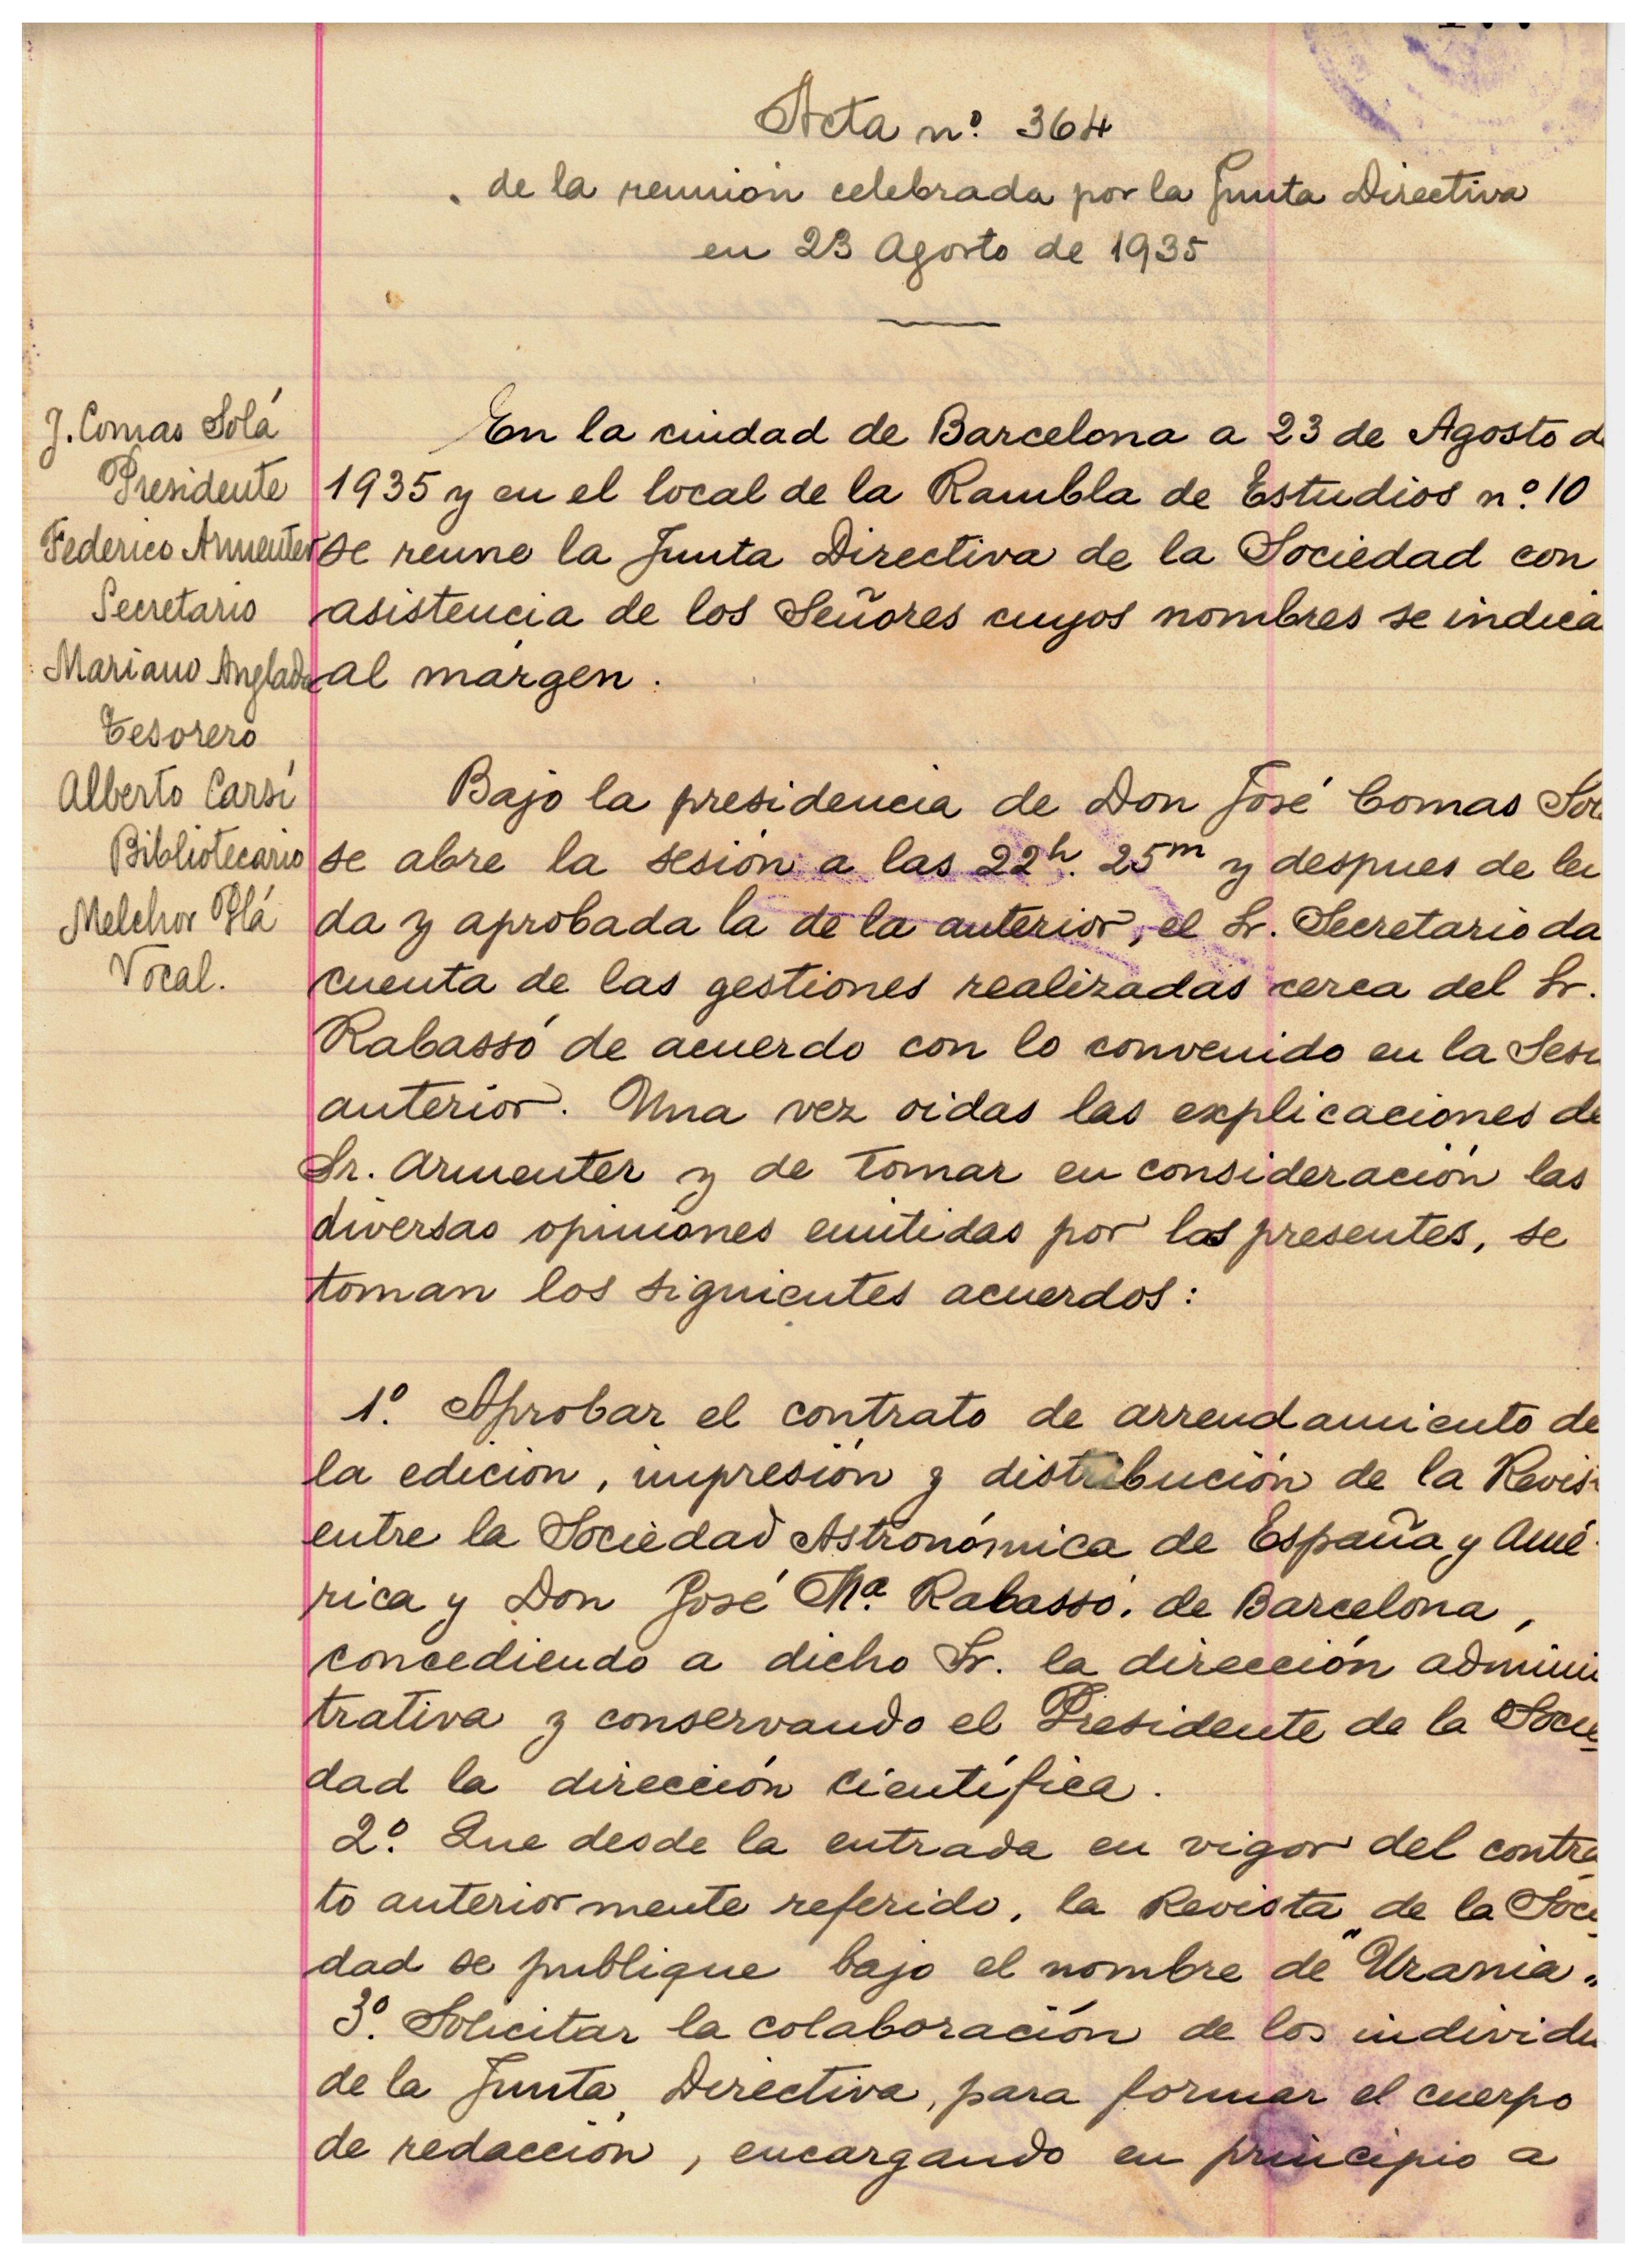 Acta nº. 364
de la reunión celebrada por la Junta Directiva
en 23 Agosto de 1935
J. Comas Solá
Presidente
Federico Armenter
Secretario
Mariano Anglada
Tesorero
Alberto Carsí
Bibliotecario
Melchor Plá
Vocal.
En la ciudad de Barcelona a 23 de Agosto d
1935 y en el local de la Rambla de Estudios nº. 10
se reune la Junta Directiva de la Sociedad con
asistencia de los Señores cuyos nombres se indica
al márgen.
Bajo la presidencia de Don José Comas So
se abre la sesión a las 22h. 25m y despues de lei
da y aprobada la de la anterior, el Sr. Secretario da
cuenta de las gestiones realizadas cerca del Sr.
Rabassó de acuerdo con lo convenido en la Sesi
anterior. Una vez oidas las explicaciones de
Sr. Armenter y de tomar en consideración las
diversas opiniones emitidas por los presentes, se
toman los siguientes acuerdos:
1º. Aprobar el contrato de arrendamiento de
la edición, impresión y distribución de la Revis
entre la Sociedad Astronómica de España y Amé
rica y Don José Mª. Rabassó. de Barcelona,
concediendo a dicho Sr. la dirección adminis
trativa y conservando el Presidente de la Socie
dad la dirección científica.
2º. Que desde la entrada en vigor del contra
to anteriormente referido, la Revista de la Soci
dad se publique bajo el nombre de "Urania"
3º. Solicitar la colaboración de los individu
de la Junta Directiva, para formar el cuerpo
de redacción, encargando en principio a